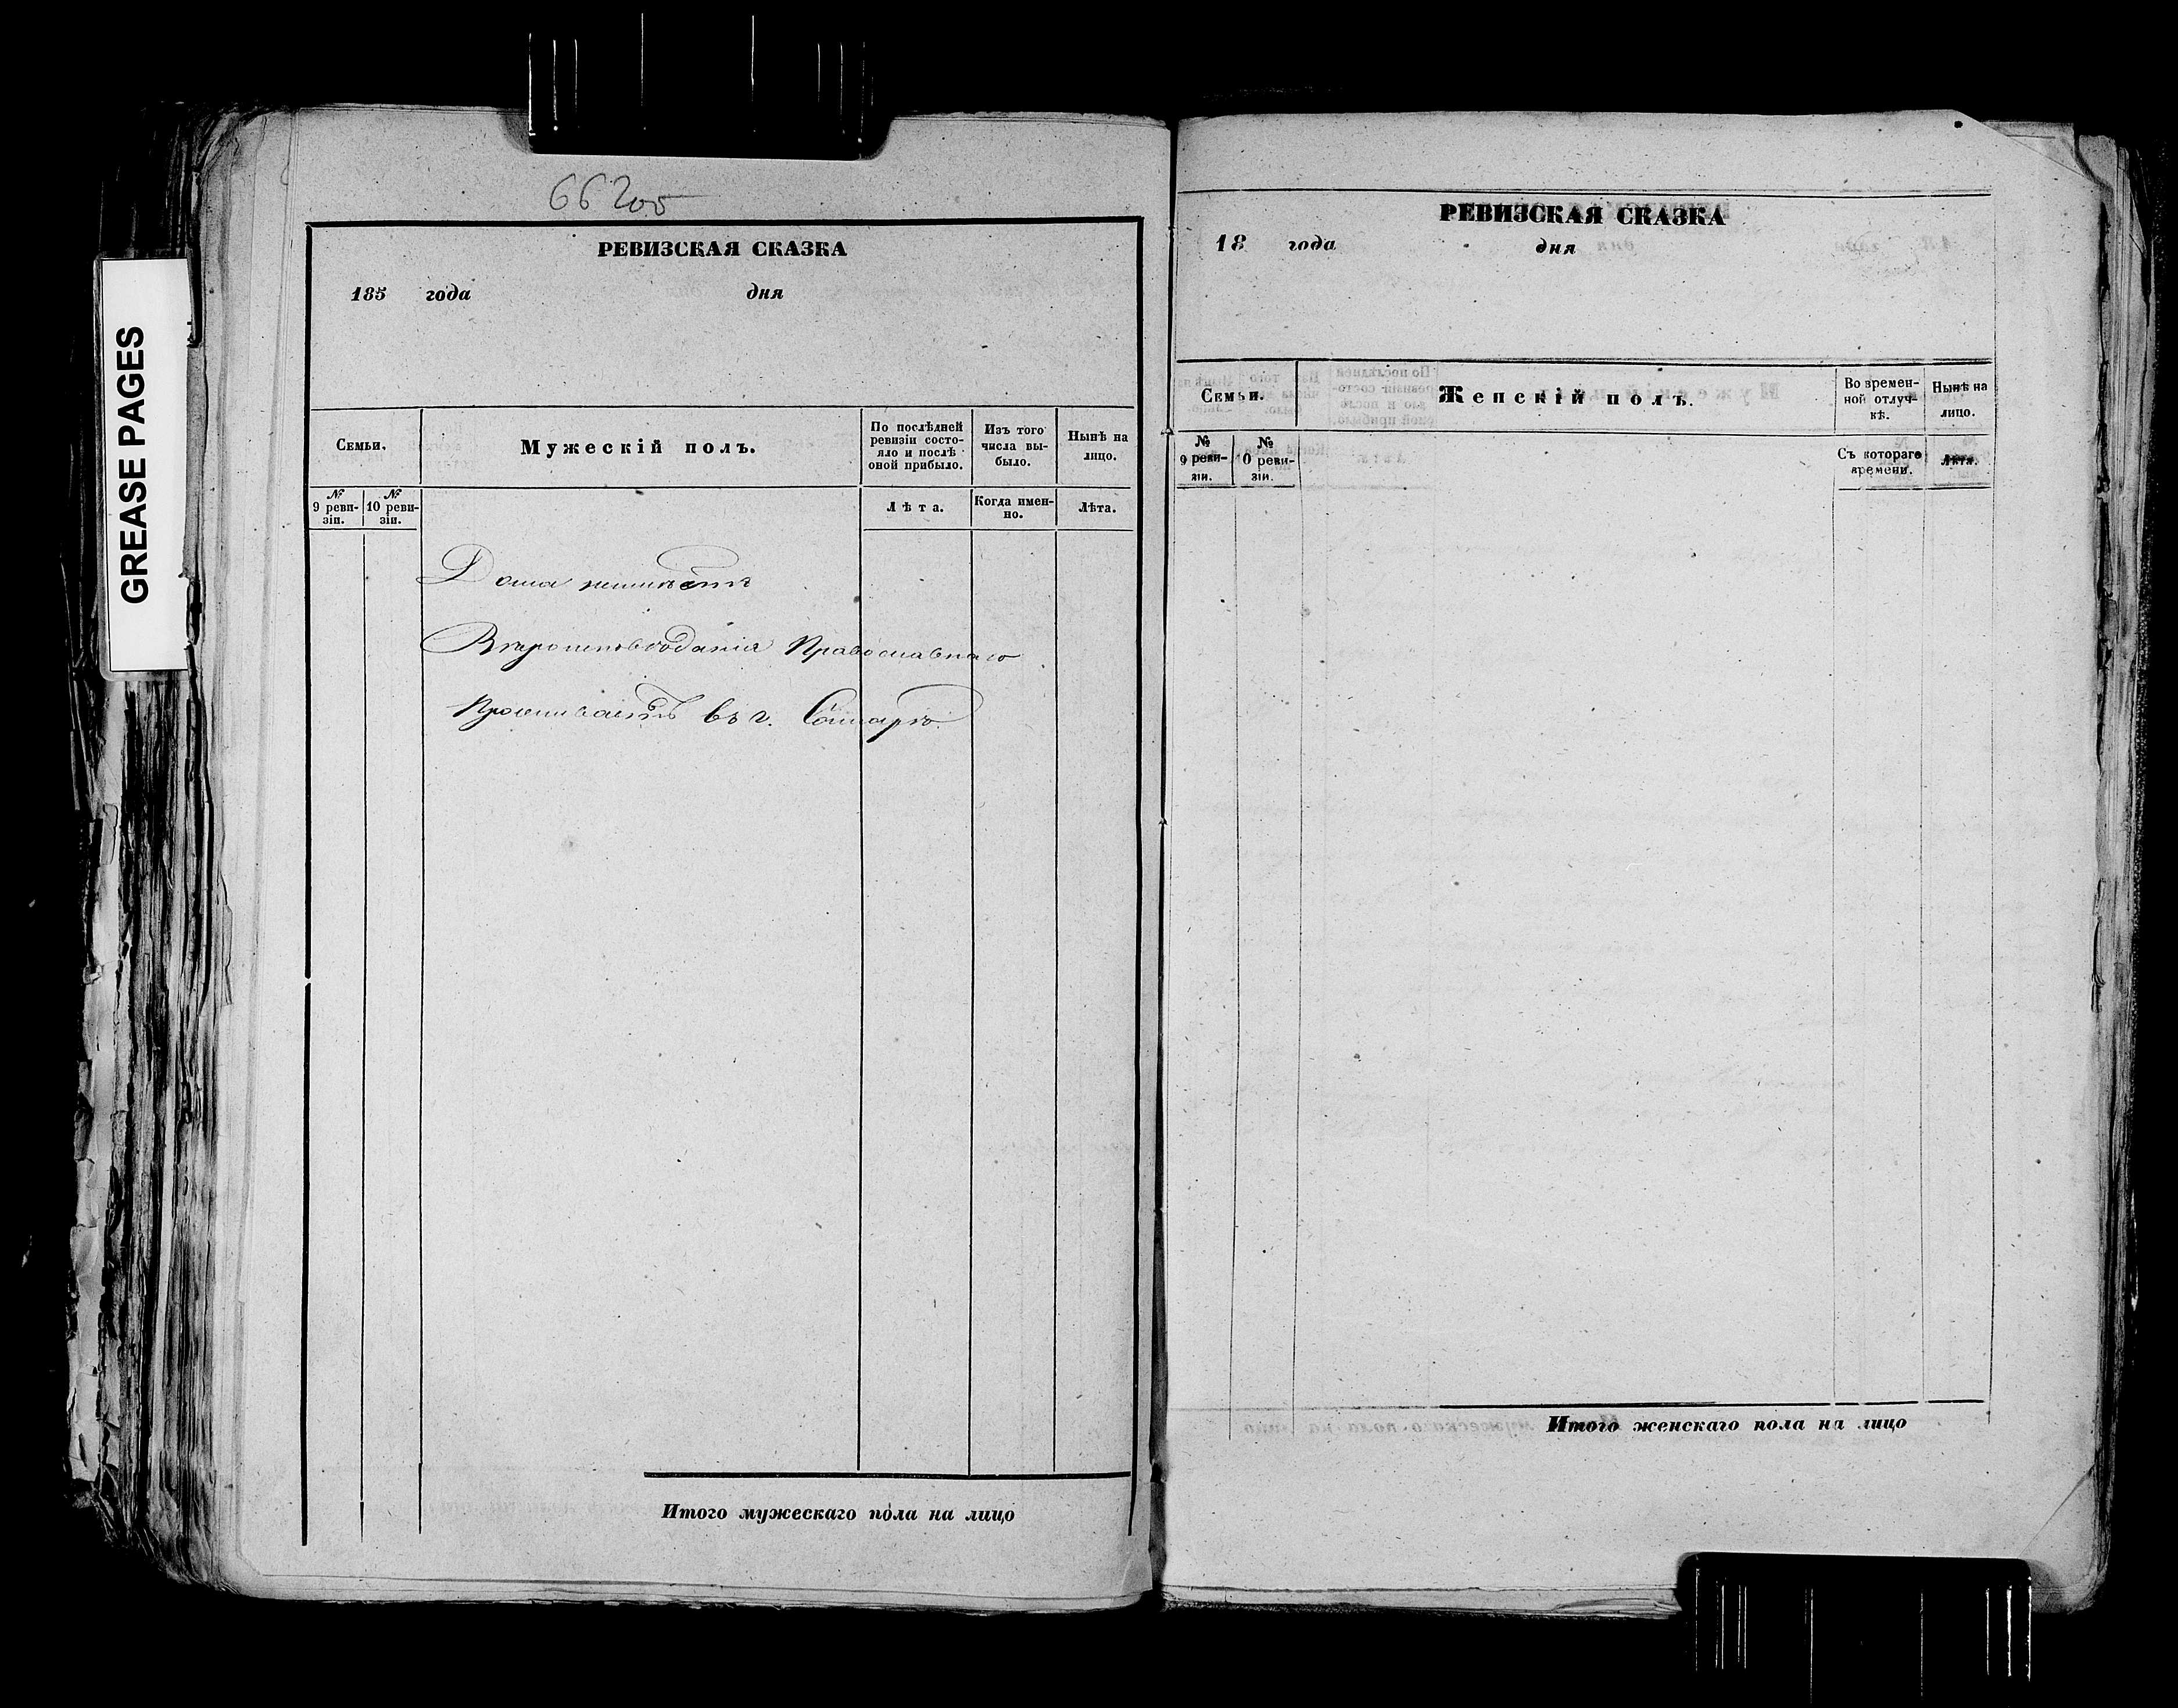 GREASE PAGES
66 206
РЕВИЗСКАЯ СКАЗКА
185 года дня
Семьи.
Мужескій полъ.
По послѣдней ревизіи состо-
яло и послѣ
оной прибыло.
Изъ того
числа вы-
было.
Нынѣ на
лицо.
№
9 реви-
зіи.
№
10 реви-
зіи.
Лѣта.
Когда имен-
но.
Лѣта.
Дома неимѣетъ
Вѣроисповѣданія Православнаго
Проживаетъ въ г. Самарѣ
Итого мужескаго пола на лицо
РЕВИЗСКАЯ СКАЗКА
18 года дня
Семьи.
Женскій полъ.
Во времен-
ной отлуч-
кѣ.
Нынѣ на
лицо.
№
9 реви-
зіи.
№
0 реви-
зіи.
Съ котораго
времени.
Лѣта.
Итого женскаго пола на лицо